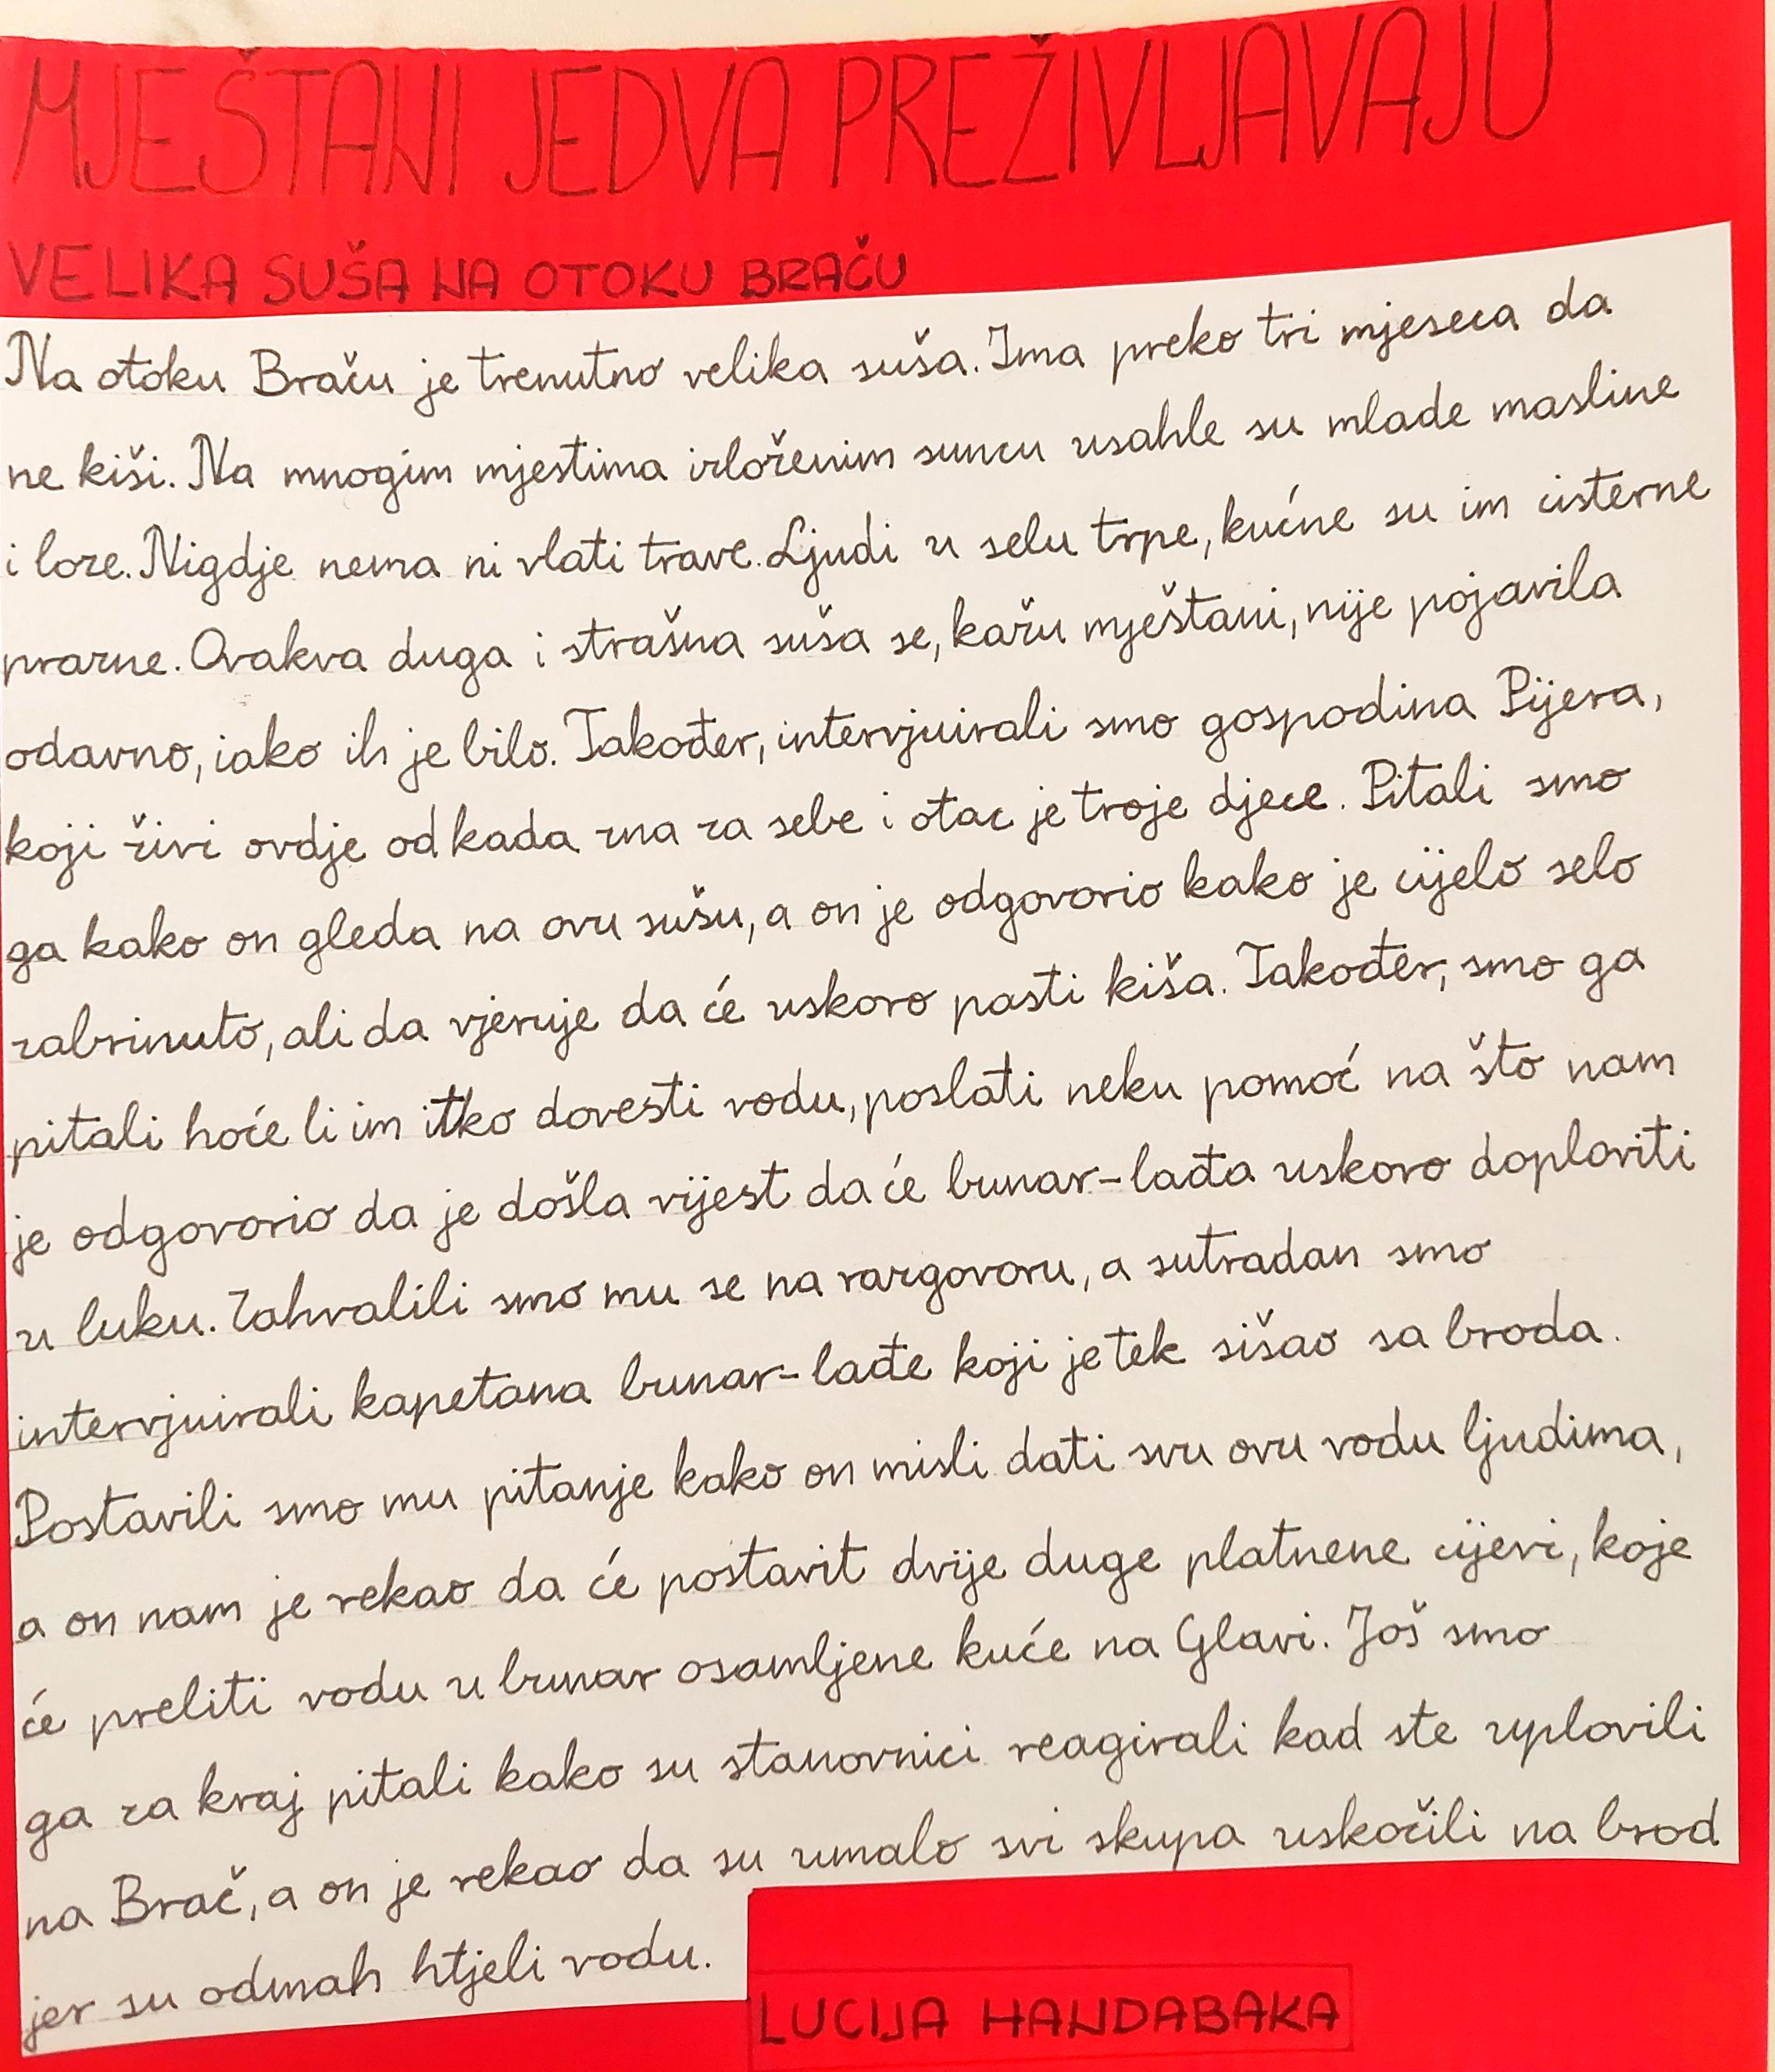 MJEŠTANI JEDVA PREŽIVLJAVAJU
VELIKA SUŠA NA OTOKU BRAČU
Na otoku Braču je trenutno velika suša. Ima preko tri mjeseca da
ne kiši. Na mnogim mjestima izloženim suncu usahle su mlade masline
i loze. Nigdje nema ni vlati trave. Ljudi u selu trpe, kućne su im cisterne
prazne. Ovakva duga i strašna suša se, kažu mještani, nije pojavila
odavno, iako ih je bilo. Također, intervjuirali smo gospodina Pijera,
koji živi ovdje od kada zna za sebe i otac je troje djece. Pitali smo
ga kako on gleda na ovu sušu, a on je odgovorio kako je cijelo selo
zabrinuto, ali da vjeruje da će uskoro pasti kiša. Također, smo ga
pitali hoće li im itko dovesti vodu, poslati neku pomoć na što nam
je odgovorio da je došla vijest da će bunar-lađa uskoro doploviti
u luku. Zahvalili smo mu se na razgovoru, a sutradan smo
intervjuirali kapetana bunar-lađe koji je tek sišao sa broda.
Postavili smo mu pitanje kako on misli dati svu ovu vodu ljudima,
a on nam je rekao da će postavit dvije duge platnene cijevi, koje
će preliti vodu u bunar osamljene kuće na Glavi. Još smo
ga za kraj pitali kako su stanovnici reagirali kad ste uplovili
na Brač, a on je rekao da su umalo svi skupa uskočili na brod
jer su odmah htjeli vodu.
LUCIJA HANDABAKA